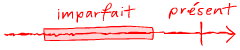 imparfait présent